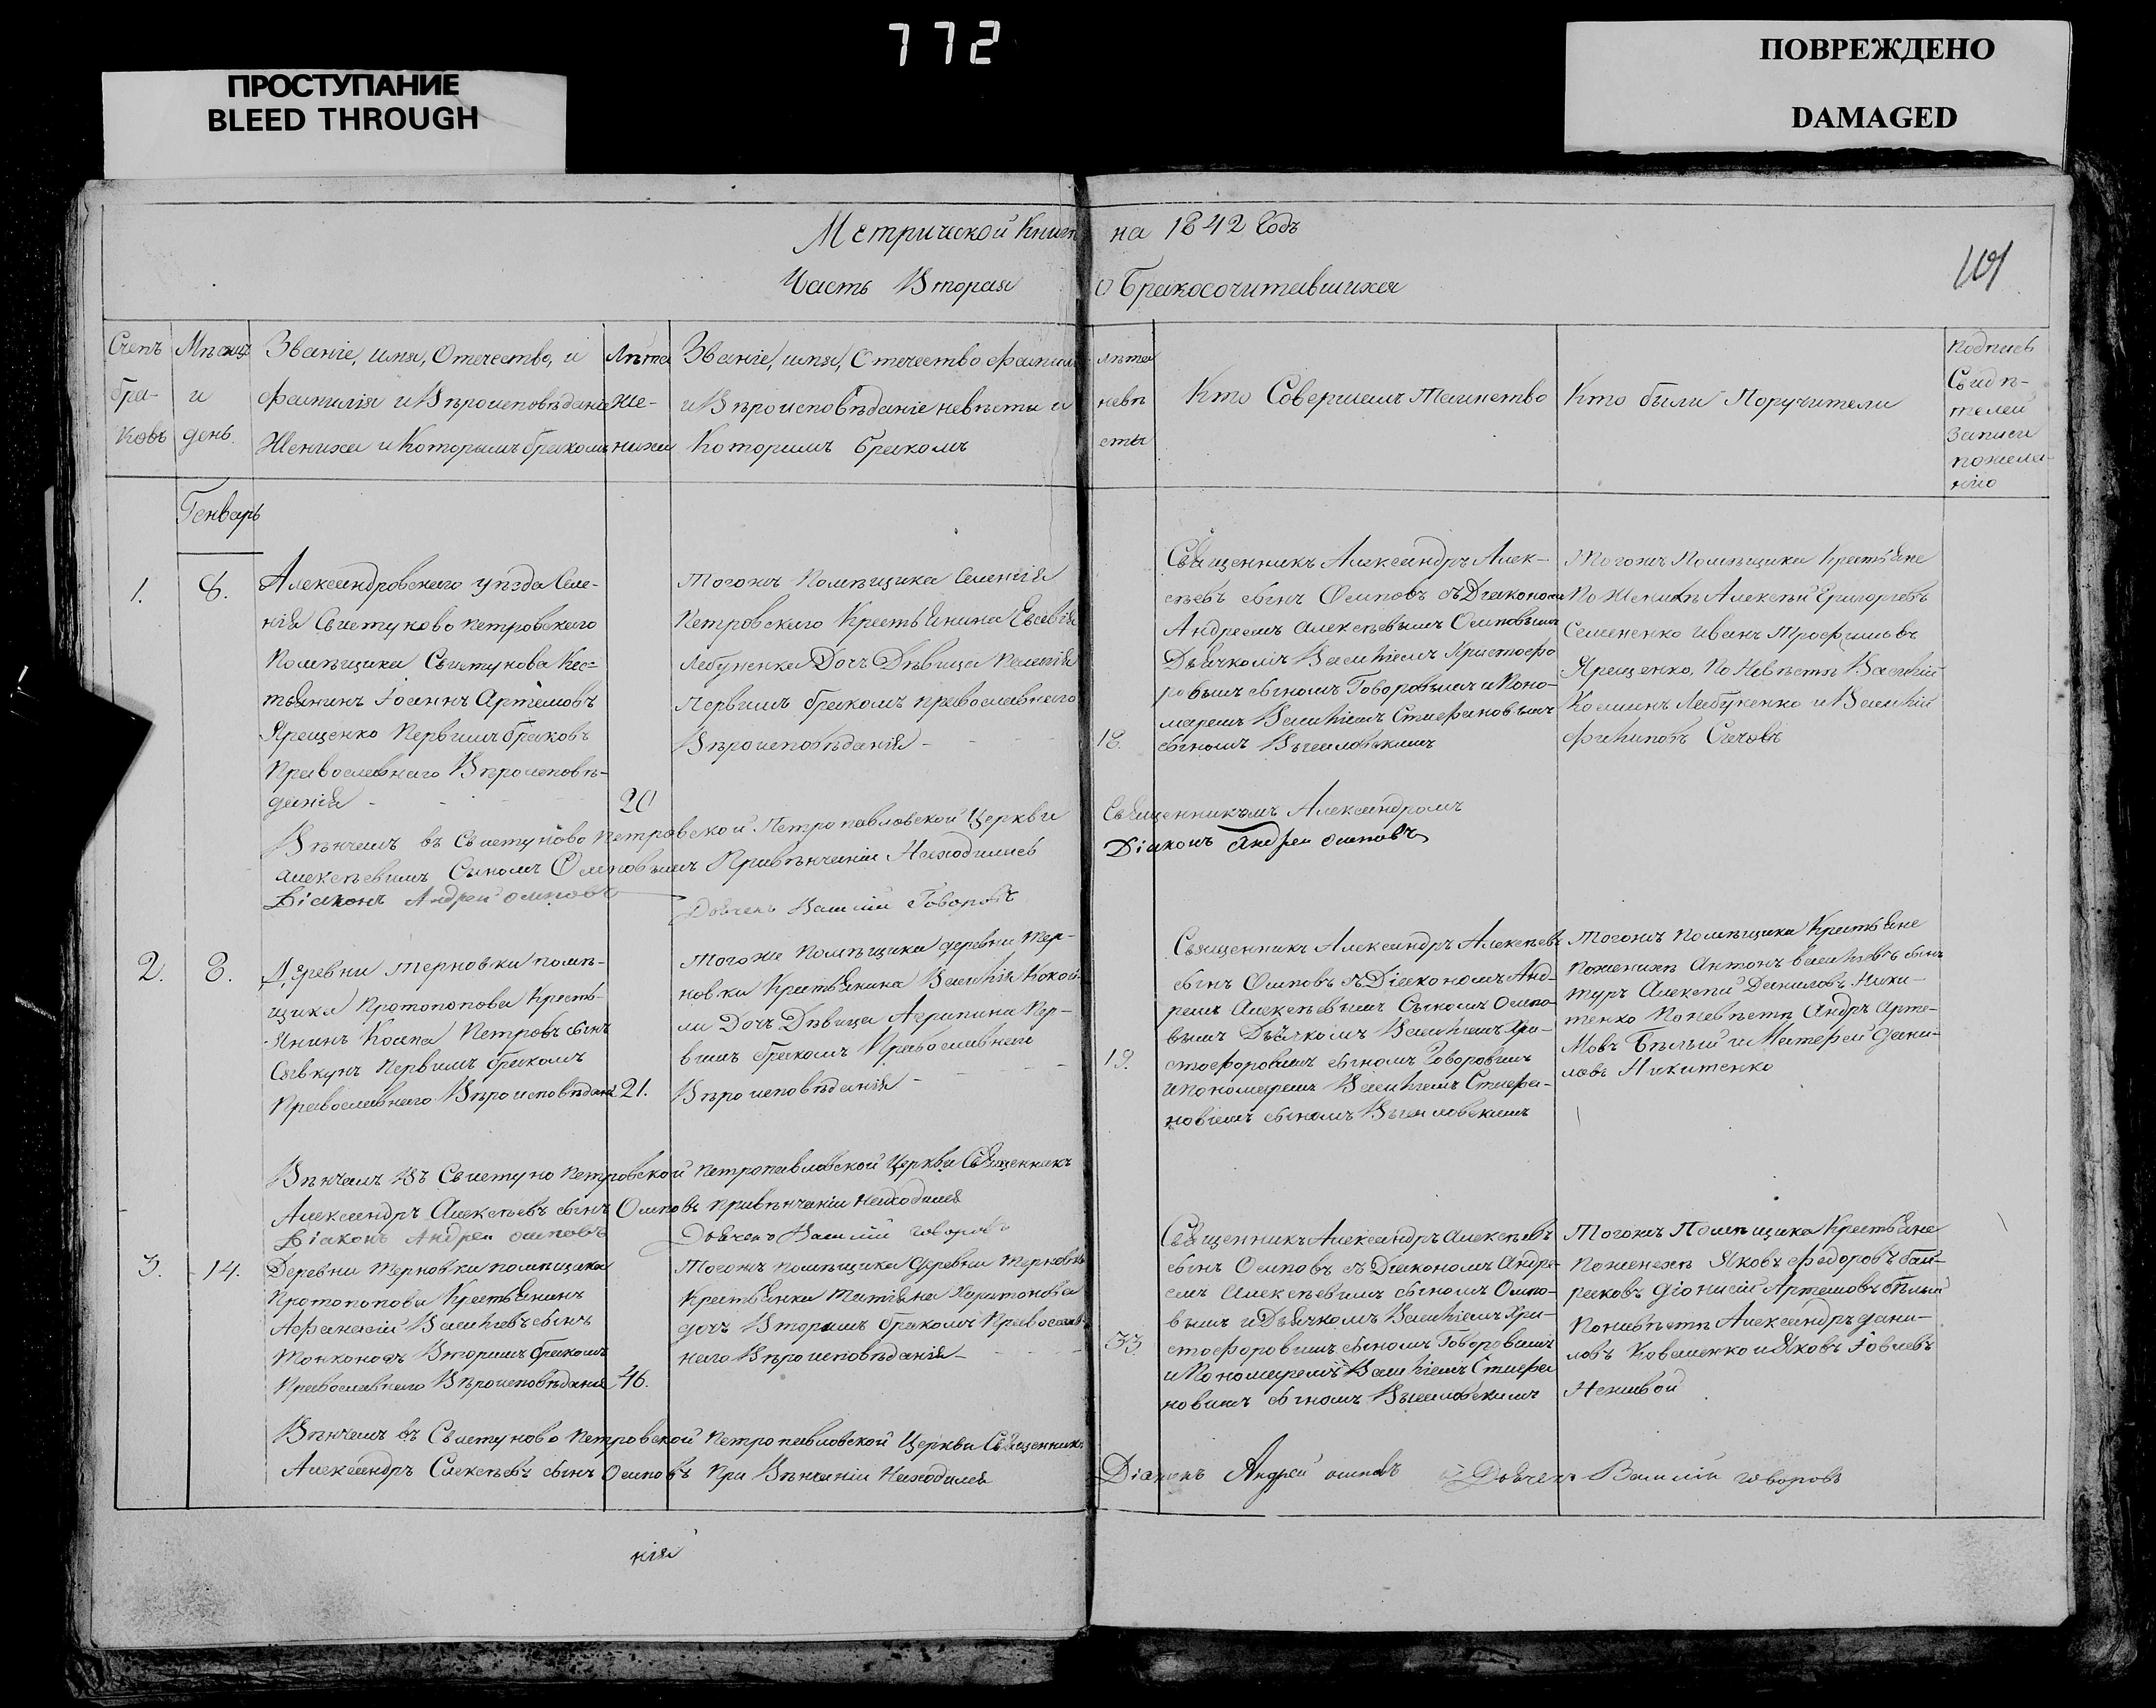 772
ПРОСТУПАНИЕ
BLEED THROUGH
ПОВРЕЖДЕНО
DAMAGED
Метрической Книги на 1842 Годъ
Часть Вторая о Бракосочитавшихся
101
Счетъ
бра-
ковъ
Мѣсяцъ
и
день
Званіе, имя, Отечество, и
фамилія и Вѣроисповѣданіе
Жениха и Которымъ бракомъ
Лѣта
же-
ниха
Званіе, имя, Отечество Фамилія
и Вѣроисповѣданіе невѣсты и
Которымъ бракомъ
лѣта
невѣ
сты
Кто Совершалъ Таинство
Кто были Поручители
подпись
Свидѣ-
телей
Записи
пожела-
нію
Генварь
1.
8.
Александровскаго уѣзда Селе-
нія Свистуново петровскаго
Помѣщика Свистунова Крес-
тьянинъ Іоаннъ Артемовъ
Ярещенко Первымъ браковъ
Православнаго Вѣроисповѣ-
данія
20
тогожъ Помѣщика Селенія
Петровскаго Крестьянина Евсевія
Лебуненка Дочь Дѣвица Пелагія
первымъ бракомъ православнаго
Вѣроисповѣданія
18.
Священникъ Александръ Алек-
сѣевъ сынъ Осиповъ съ Діакономъ
Андреемъ Алексѣевымъ Осиповымъ
Дьячкомъ Василіемъ Христофо
ровымъ сыномъ Говоровымъ и Поно-
маремъ Василіемъ Стефановымъ
сыномъ
Тогожъ Помѣщика Крестьяне
По Женихѣ Алексѣй Григорьевъ
Семененко Иванъ Трофимовъ
Ярещенко, По Невѣстѣ Василій
Косминъ Лебуненко и Василій
Филиповъ
Вѣнчалъ въ Свистуново петровской Петропавловской Церкви Священникомъ Александромъ
Алексѣевымъ Сыномъ Осиповымъ Привѣнчаніи Находились Діаконъ Андрей Осиповъ
Діаконъ Андрей Осиповъ
Дьячекъ Василій Говоровъ
2.
8.
Деревни Терновки помѣ-
щика Протопопова Кресть-
янинъ Козма Петровъ сынъ
Первымъ бракомъ
Православнаго Вѣроисповѣданія
21.
тогоже Помѣщика деревни Тер-
новки Крестьянина Василія
Дочь Дѣвица Агрипина Пер-
вымъ бракомъ Православнаго
Вѣроисповѣданія
19.
Священникъ Александръ Алексѣевъ
сынъ Осиповъ съ Діакономъ Анд-
реемъ Алексѣевымъ Сыномъ Осипо-
вымъ Дьячкомъ Василіемъ Хри-
стофоровымъ сыномъ Говоровымъ
и пономаремъ Василіемъ Стефа-
новымъ сыномъ
Тогожъ помѣщика Крестьяне
поженихѣ Антонъ Васильевъ сынъ
Алексѣй Даниловъ Ники-
тенко Поневѣстѣ Андрѣ Арте-
мовъ Бѣлый и Матфей Дани-
ловъ Никитенко
Вѣнчалъ Въ Свистуно петровской петропавловской Церкви Священникъ
Александръ Алексѣевъ сынъ Осиповъ привѣнчаніи находился
Діаконъ Андрей Осиповъ
Дьячекъ Василій Говоровъ
3.
14.
Деревни Терновки помѣщика
Протопопова Крестьянинъ
Афанасій Васильевъ сынъ
Тонконогъ Вторымъ бракомъ
Православнаго Вѣроисповѣданія
46.
Тогожъ помѣщика деревни Терновки
Крестьянка Татіяна Харитонова
дочь Вторымъ бракомъ Православ-
наго Вѣроисповѣданія
33
Священникъ Александръ Алексѣевъ
сынъ Осиповъ съ Діакономъ Андре-
емъ Алексѣевымъ сыномъ Осипо-
вымъ и Дьячкомъ Василіемъ Хри-
стофоровымъ сыномъ Говоровымъ
и Пономаремъ Василіемъ Стефа
новымъ сыномъ
Тогожъ Помѣщика Крестьяне
Поженихѣ Яковъ Федоровъ Бай-
раковъ Діонисій Артемовъ Бѣлый
Поневѣстѣ Александръ Дани-
ловъ Коваленко и Яковъ Іовлевъ
Неживой
Вѣнчалъ въ Свистуново Петровской Петропавловской Церкви Священникъ
Александръ Алексѣевъ сынъ Осиповъ При Вѣнчаніи Находился Діаконъ Андрей Осиповъ Дьячекъ Василій Говоровъ
нія